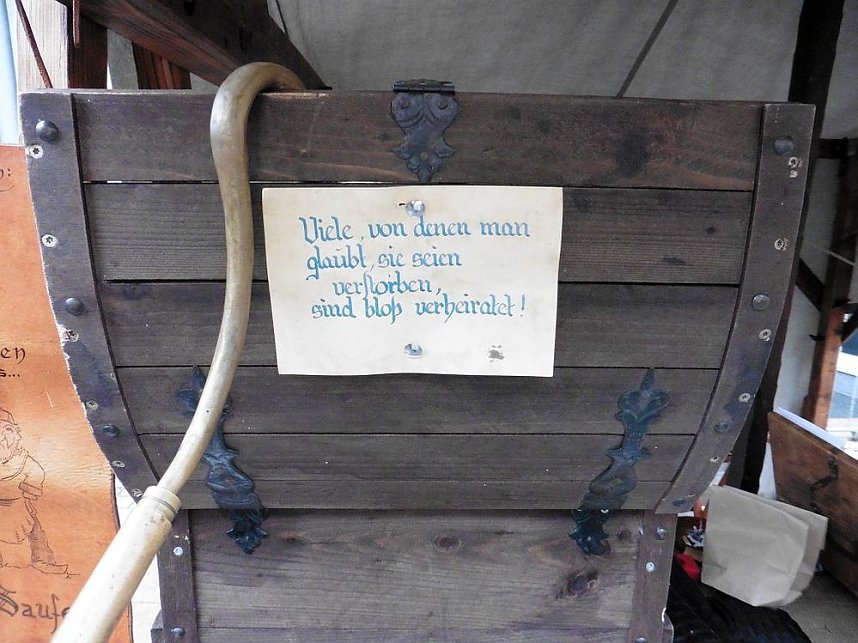 Viele, von denen man
glaubt, sie seien
verstorben,
sind bloß verheiratet!
en
s...
Saufe